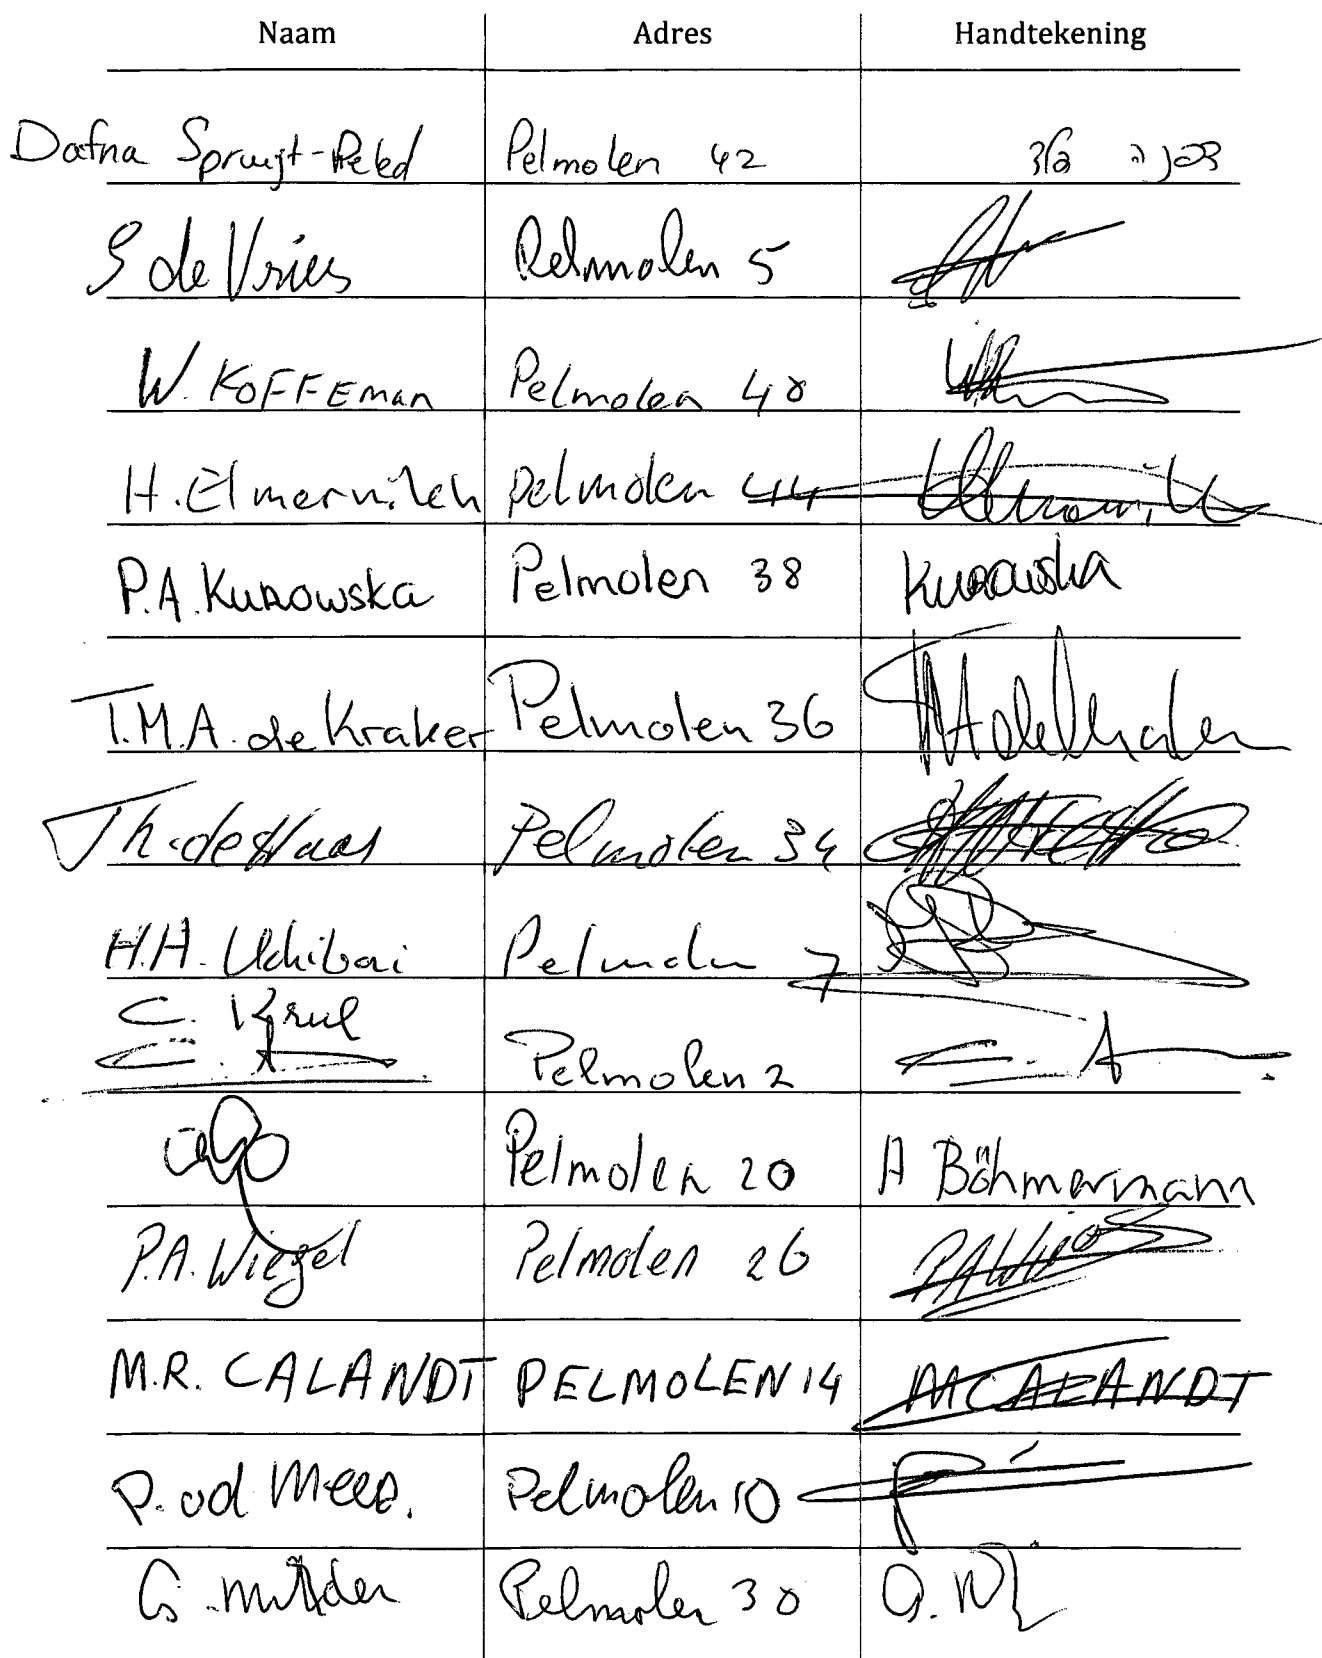 Naam Adres Handtekening
Dafna Spruijt-Peled Pelmolen 42 דפנה פלד
S de Vries Pelmolen 5
W. KOFFEman Pelmolen 40
H. Elmernileh pelmolen 44
P.A. Kurowska Pelmolen 38 Kurowska
T.M.A. de Kraker Pelmolen 36
Th. de Haas Pelmolen 34
H.H. Pelmolen 7
C. Krul
Pelmolen 2
Pelmolen 20 A Böhmermann
P.A. Wiegel Pelmolen 26
M.R. CALANDT PELMOLEN 14 MCALANDT
P. vd Meer. Pelmolen 10
G. Mulder Pelmolen 30